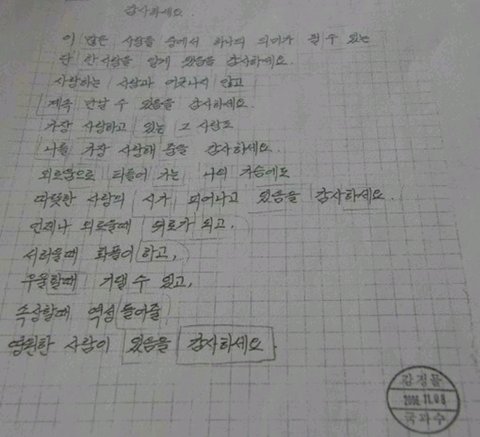 감사하세요.
이 많은 사람들 중에서 하나의 의미가 될 수 있는
단 한사람을 알게 있음을 감사하세요.
사랑하는 사람과 어긋나지 않고
계속 만날 수 있음을 감사하세요.
가장 사랑하고 있는 그 사람도
나를 가장 사랑해 줌을 감사하세요.
외로움으로 타들어 가는 나의 가슴에도
따뜻한 사랑의 시가 피어나고 있음을 감사하세요.
언제나 외로울때 위로가 되고,
서러울때 화풀이 하고,
우울할때 기댈 수 있고,
속상할때 역성 들어줄
영원한 사람이 있음을 감사하세요.
감정물
2006. 11. 08
국과수